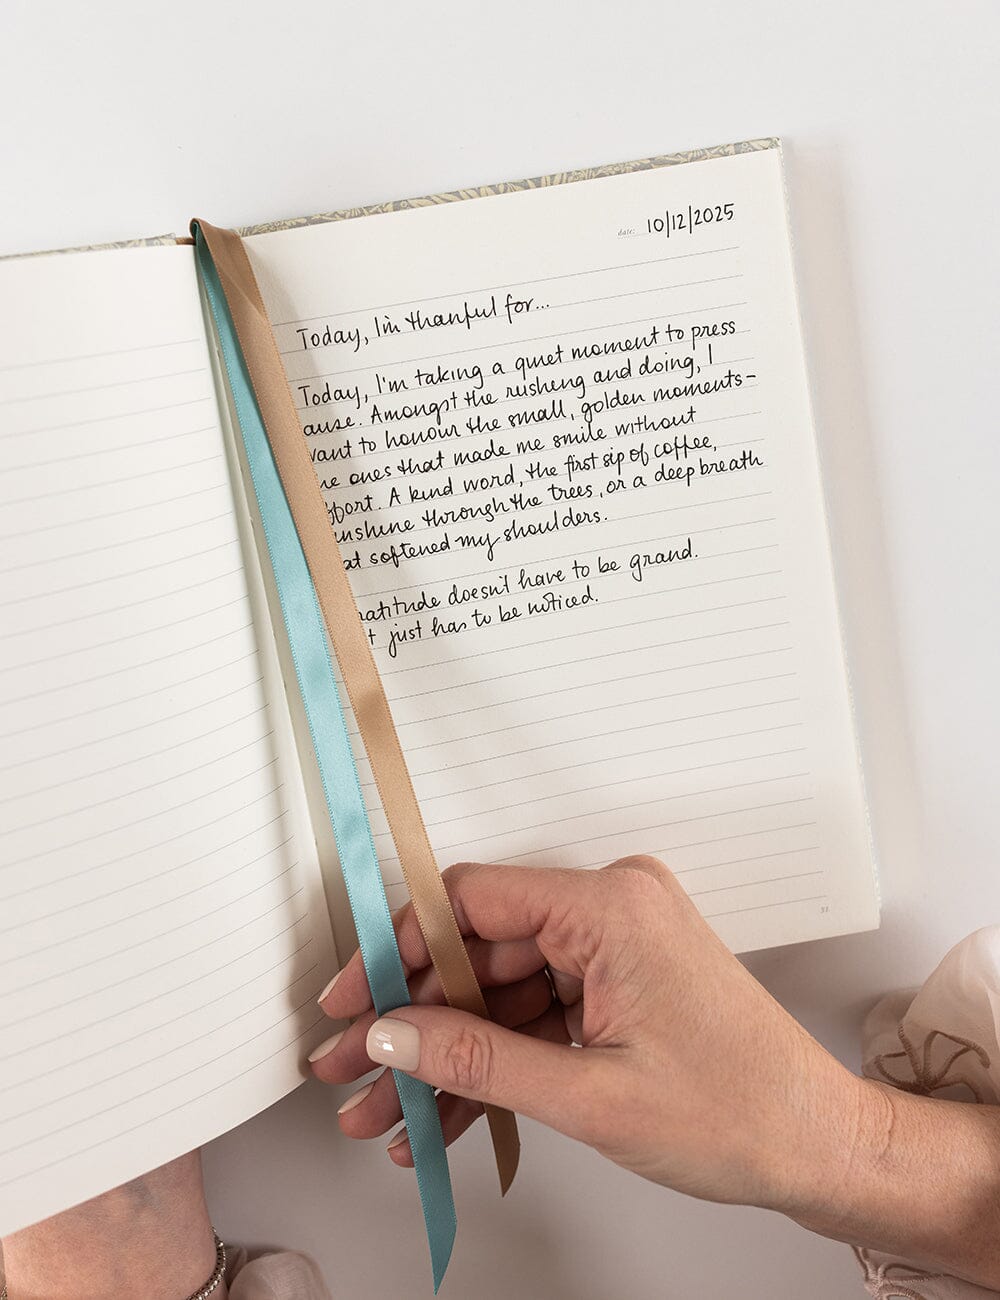 date: 10/12/2025
Today, I'm thanful for...
Today, I'm taking a quiet moment to press
ause. Amongst the rusheng and doing, I
want to honour the small, golden moments-
he ones that made me smile without
ffort. A kind word, the first sip of coffee,
unshine through the trees, or a deep breath
at softened my shoulders.
ratitude doesn't have to be grand.
t just has to be noticed.